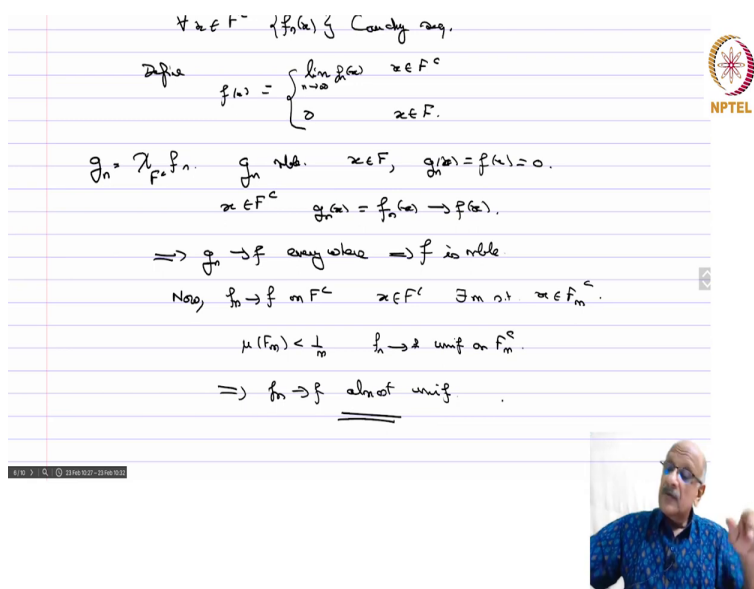 ∀ x ∈ F^c {f_n(x)} Cauchy seq.
Define f(x) = { lim_{n→∞} f_n(x) x ∈ F^c
0 x ∈ F.
NPTEL
g_n = χ_{F^c} f_n. g_n mble. x ∈ F, g_n(x) = f(x) = 0.
x ∈ F^c g_n(x) = f_n(x) → f(x).
⟹ g_n → f everywhere ⟹ f is mble.
Now, f_n → f on F^c x ∈ F^c ∃ m s.t. x ∈ F_m^c.
μ(F_m) < 1/m f_n → f unif on F_m^c.
⟹ f_n → f almost unif.
6/10 23 Feb 10:27 – 23 Feb 10:32